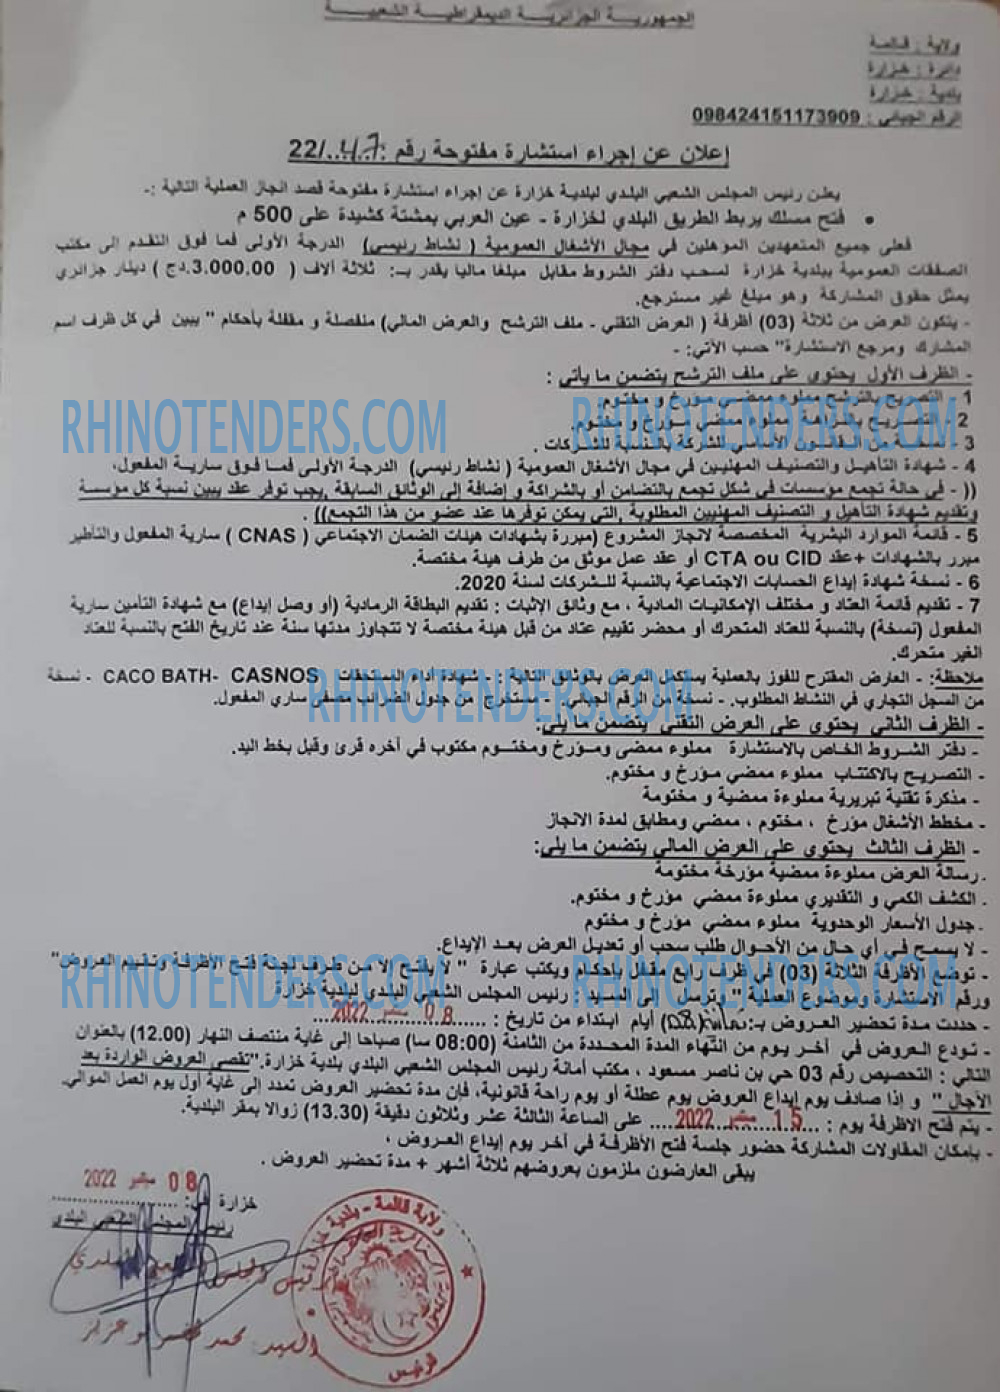 الجمهوريـــة الجزائريـــة الديمقراطيـــة الشعبيـــــة
ولاية : قالمة
دائرة : خزارة
بلدية : خزارة
الرقم الجبائي : 098424151173909
إعلان عن إجراء استشارة مفتوحة رقم :47/22
يعلن رئيس المجلس الشعبي البلدي لبلدية خزارة عن إجراء استشارة مفتوحة قصد انجاز العملية التالية :-
• فتح مسلك يربط الطريق البلدي لخزارة - عين العربي بمشتة كشيدة على 500 م
فعلى جميع المتعهدين المؤهلين في مجال الأشغال العمومية ( نشاط رئيسي) الدرجة الأولى فما فوق التقدم إلى مكتب
الصفقات العمومية ببلدية خزارة لسحب دفتر الشروط مقابل مبلغا ماليا يقدر بـ: ثلاثة ألاف ( 3.000.00.دج ) دينار جزائري
يمثل حقوق المشاركة وهو مبلغ غير مسترجع.
- يتكون العرض من ثلاثة (03) أظرفة ( العرض التقني - ملف الترشح والعرض المالي) منفصلة و مقفلة بأحكام " يبين في كل ظرف اسم
المشارك ومرجع الاستشارة" حسب الآتي: -
- الظرف الأول يحتوي على ملف الترشح يتضمن ما يأتي :
1 - التصريح بالترشح مملوء ممضي مؤرخ و مختوم.
2 - التصريح بالنزاهة مملوء ممضي مؤرخ و مختوم.
3 - نسخة من القانون الأساسي للشركة بالنسبة للشركات .
4 - شهادة التأهيل والتصنيف المهنيين في مجال الأشغال العمومية ( نشاط رئيسي) الدرجة الأولى فما فوق سارية المفعول،
(( - في حالة تجمع مؤسسات في شكل تجمع بالتضامن أو بالشراكة و إضافة إلى الوثائق السابقة ,يجب توفر عقد يبين نسبة كل مؤسسة
وتقديم شهادة التأهيل و التصنيف المهنيين المطلوبة ,التي يمكن توفرها عند عضو من هذا التجمع)) .
5 - قائمة الموارد البشرية المخصصة لانجاز المشروع (مبررة بشهادات هيئات الضمان الاجتماعي ( CNAS ) سارية المفعول والتأطير
مبرر بالشهادات +عقد CTA ou CID أو عقد عمل موثق من طرف هيئة مختصة.
6 - نسخة شهادة إيداع الحسابات الاجتماعية بالنسبة للشركات لسنة 2020.
7 - تقديم قائمة العتاد و مختلف الإمكانيات المادية ، مع وثائق الإثبات : تقديم البطاقة الرمادية (أو وصل إيداع) مع شهادة التأمين سارية
المفعول (نسخة) بالنسبة للعتاد المتحرك أو محضر تقييم عتاد من قبل هيئة مختصة لا تتجاوز مدتها سنة عند تاريخ الفتح بالنسبة للعتاد
الغير متحرك.
ملاحظة: - العارض المقترح للفوز بالعملية يستكمل العرض بالوثائق التالية : - شهادة أداء المستحقات CACO BATH- CASNOS - نسخة
من السجل التجاري في النشاط المطلوب. - نسخة من الرقم الجبائي. - مستخرج من جدول الضرائب مصفى ساري المفعول.
- الظرف الثاني يحتوي على العرض التقني يتضمن ما يلي:
- دفتر الشروط الخاص بالاستشارة مملوء ممضى ومؤرخ ومختوم مكتوب في أخره قرئ وقبل بخط اليد.
- التصريح بالاكتتاب مملوء ممضي مؤرخ و مختوم.
- مذكرة تقنية تبريرية مملوءة ممضية و مختومة
- مخطط الأشغال مؤرخ ، مختوم ، ممضي ومطابق لمدة الانجاز
- الظرف الثالث يحتوي على العرض المالي يتضمن ما يلي:
. رسالة العرض مملوءة ممضية مؤرخة مختومة
. الكشف الكمي و التقديري مملوءة ممضي مؤرخ و مختوم.
. جدول الأسعار الوحدوية مملوء ممضي مؤرخ و مختوم
- لا يسمح في أي حال من الأحوال طلب سحب أو تعديل العرض بعد الإيداع.
- توضع الأظرفة الثلاثة (03) في ظرف رابع مقفل بإحكام ويكتب عبارة " لا يفتح إلا من طرف لجنة فتح الأظرفة وتقييم العروض"
ورقم الاستشارة وموضوع العملية " وترسل إلى السيد : رئيس المجلس الشعبي البلدي لبلدية خزارة
- حددت مدة تحضير العروض بـ: (08) أيام ابتداء من تاريخ : 08 سبتمبر 2022
- تودع العروض في أخر يوم من انتهاء المدة المحددة من الثامنة (08:00 سا) صباحا إلى غاية منتصف النهار (12.00) بالعنوان
التالي : التحصيص رقم 03 حي بن ناصر مسعود ، مكتب أمانة رئيس المجلس الشعبي البلدي بلدية خزارة."تقصى العروض الواردة بعد
الآجال " و إذا صادف يوم إيداع العروض يوم عطلة أو يوم راحة قانونية، فإن مدة تحضير العروض تمدد إلى غاية أول يوم العمل الموالي.
- يتم فتح الاظرفة يوم : 15 سبتمبر 2022 على الساعة الثالثة عشر وثلاثون دقيقة (13.30) زوالا بمقر البلدية.
- بإمكان المقاولات المشاركة حضور جلسة فتح الأظرفة في أخر يوم إيداع العروض ،
يبقى العارضون ملزمون بعروضهم ثلاثة أشهر + مدة تحضير العروض .
خزارة في: 08 سبتمبر 2022
رئيس المجلس الشعبي البلدي
رئيس المجلس الشعبي البلدي
السيد: محمد
ولاية قالمة - بلدية خزارة
الرئيس
RHINOTENDERS.COM
RHINOTENDERS.COM
RHINOTENDERS.COM
RHINOTENDERS.COM
RHINOTENDERS.COM